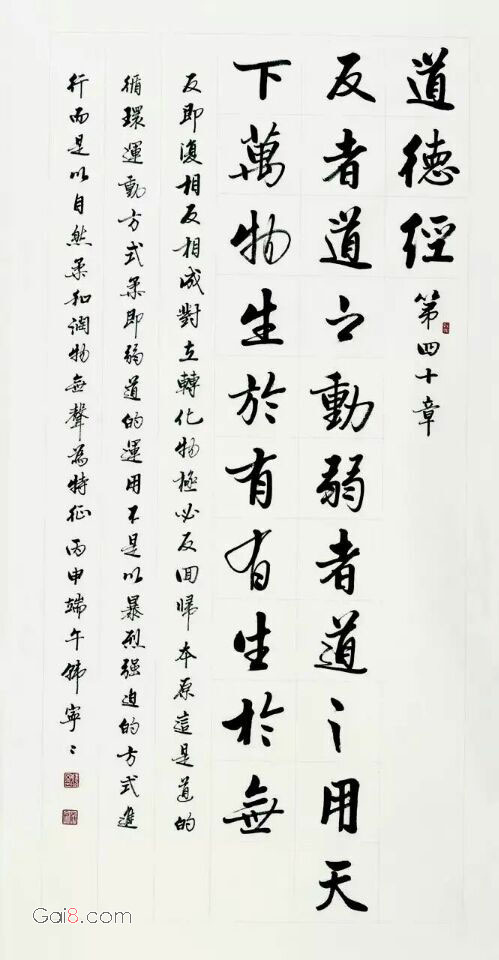 道德經 第四十章
反者道之動弱者道之用天
下萬物生於有有生於無
反即復相反相成對立轉化物極必反回歸本原這是道的
循環運動方式柔即弱道的運用不是以暴烈强迫的方式進
行而是以自然柔和潤物無聲為特征丙申端午韩寧寧
Gai8.com